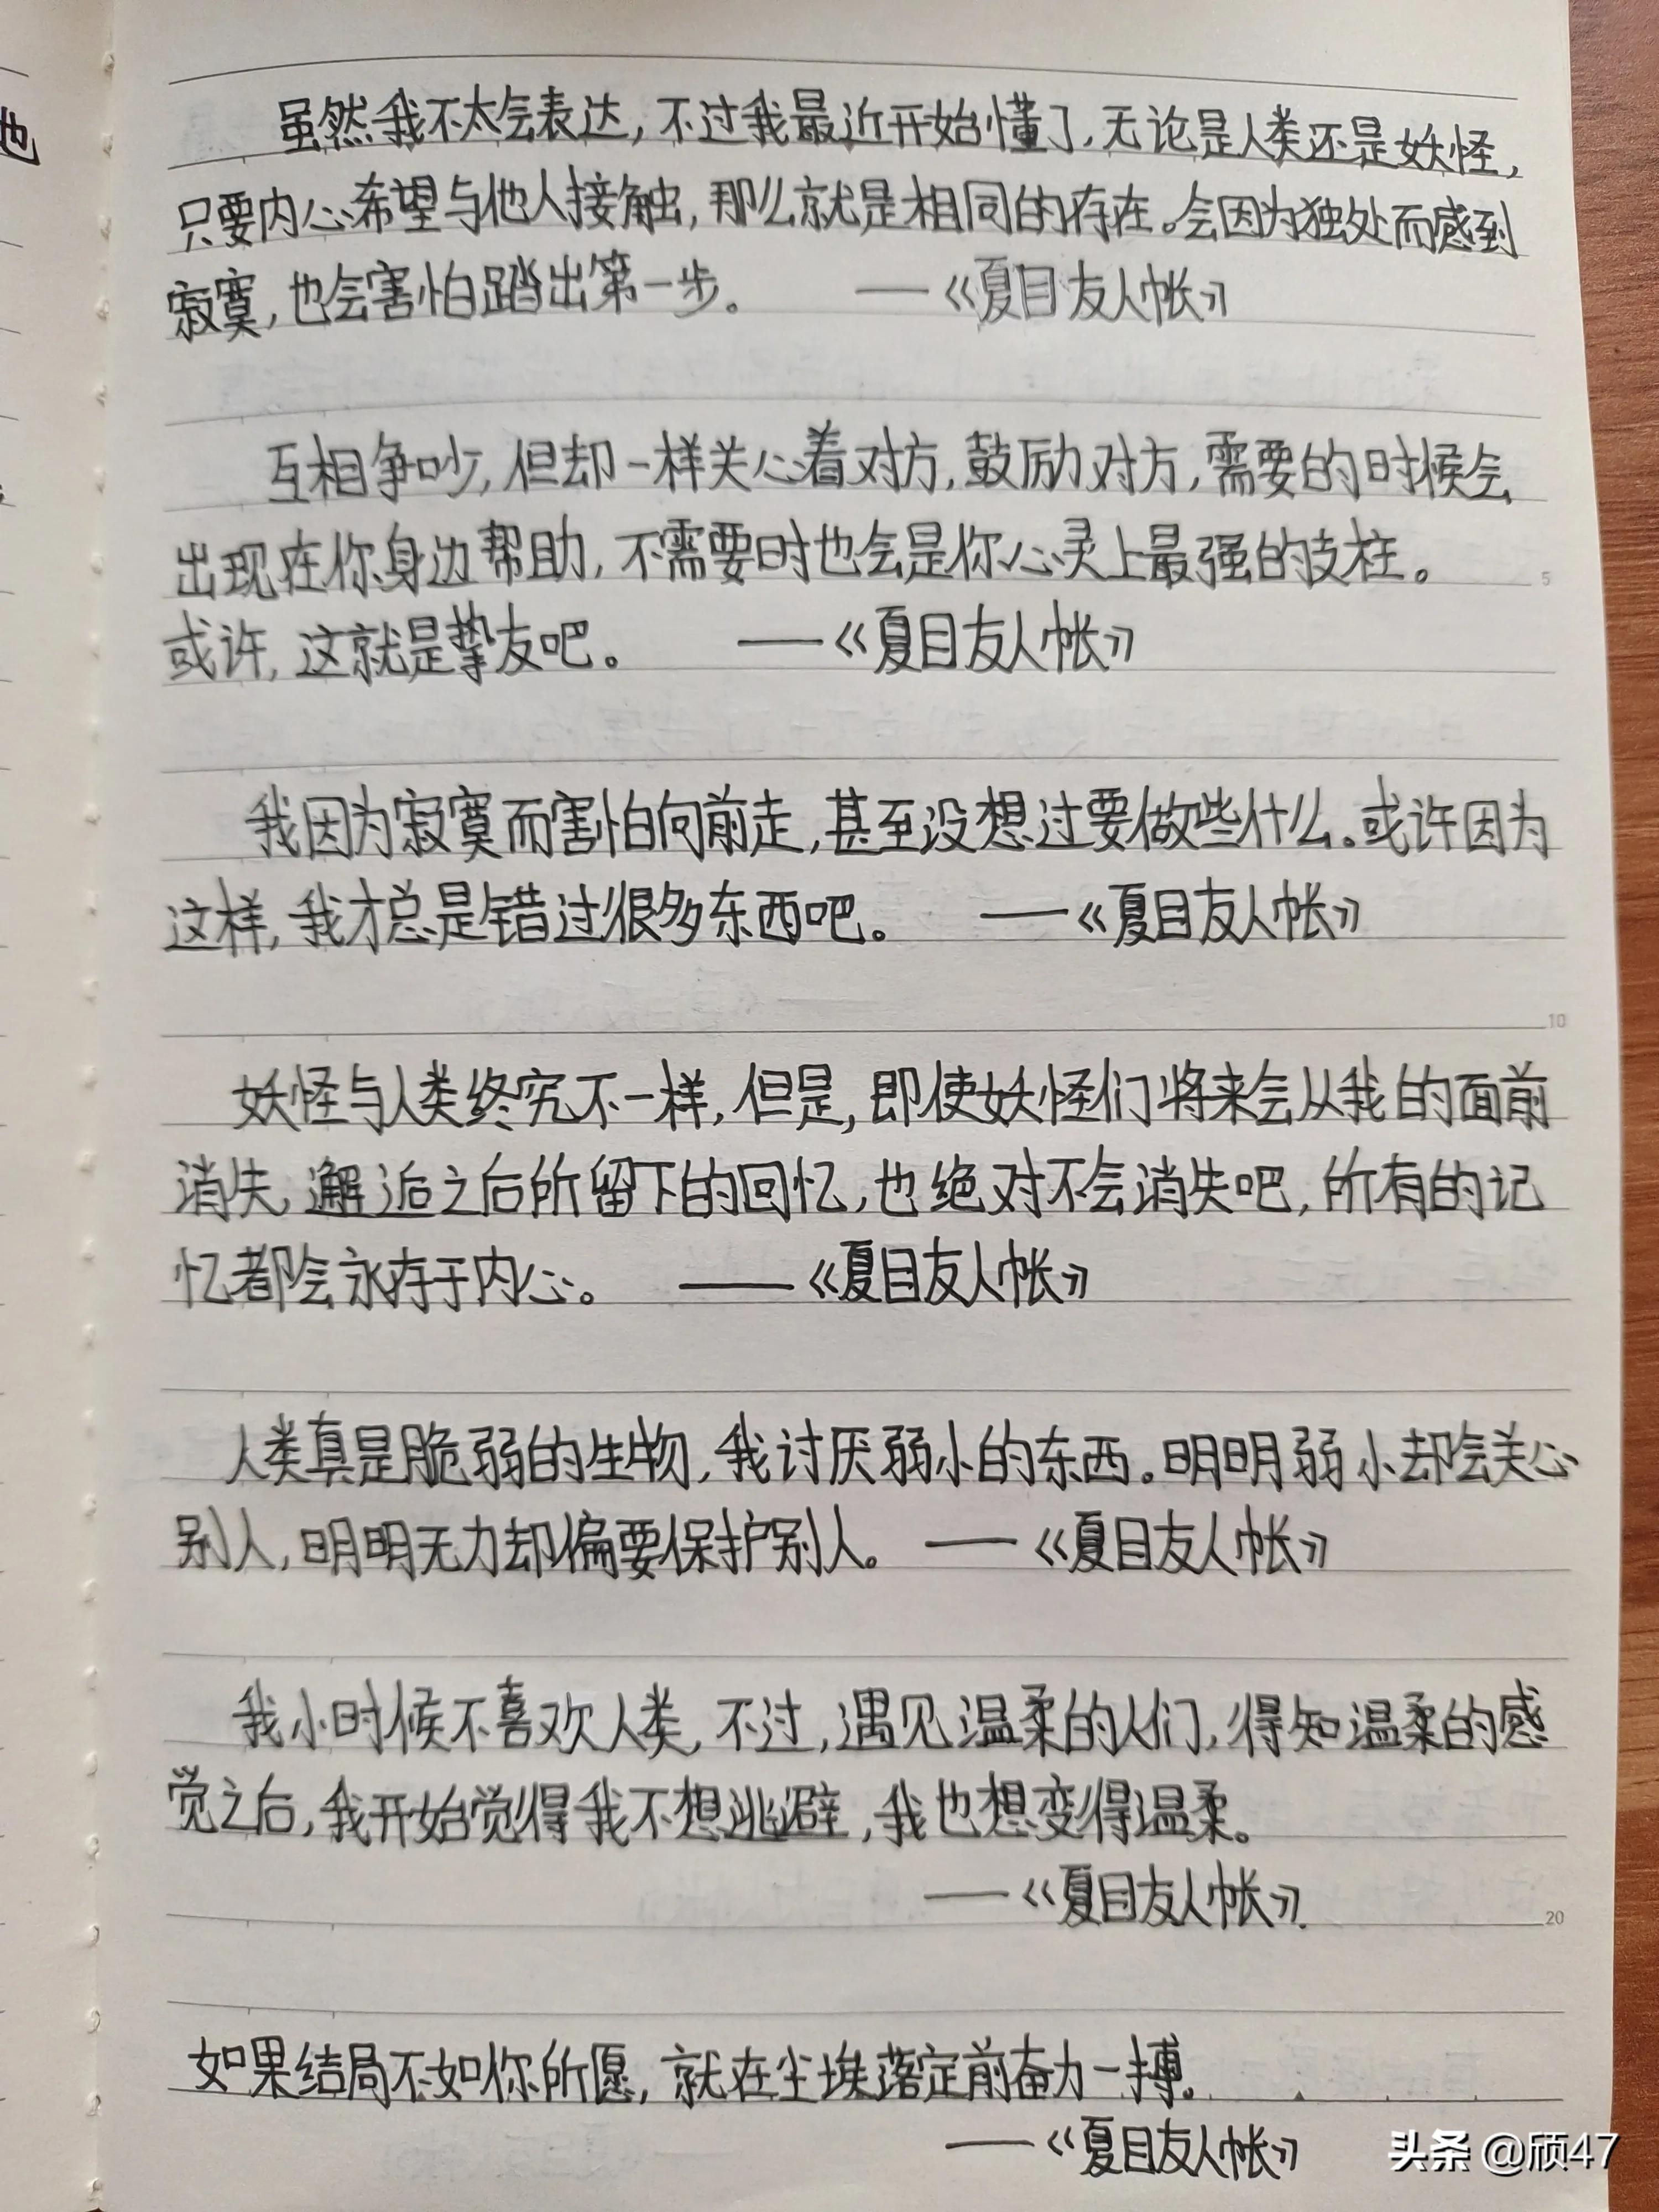 也
虽然我不太会表达,不过我最近开始懂了,无论是人类还是妖怪,
只要内心希望与他人接触,那么就是相同的存在。会因为独处而感到
寂寞,也会害怕踏出第一步。 ——《夏目友人帐》
互相争吵,但却一样关心着对方,鼓励对方,需要的时候会
出现在你身边帮助,不需要时也会是你心灵上最强的支柱。
5
或许,这就是挚友吧。 ——《夏目友人帐》
我因为寂寞而害怕向前走,甚至没想过要做些什么。或许因为
这样,我才总是错过很多东西吧。 ——《夏目友人帐》
10
妖怪与人类终究不一样,但是,即使妖怪们将来会从我的面前
消失,邂逅之后所留下的回忆,也绝对不会消失吧,所有的记
忆都会永存于内心。 ——《夏目友人帐》
人类真是脆弱的生物,我讨厌弱小的东西。明明弱小却会关心
别人,明明无力却偏要保护别人。 ——《夏目友人帐》
我小时候不喜欢人类,不过,遇见温柔的人们,得知温柔的感
觉之后,我开始觉得我不想逃避,我也想变得温柔。
——《夏目友人帐》.
20
如果结局不如你所愿,就在尘埃落定前奋力一搏。
——《夏目友人帐》
头条 @颀47